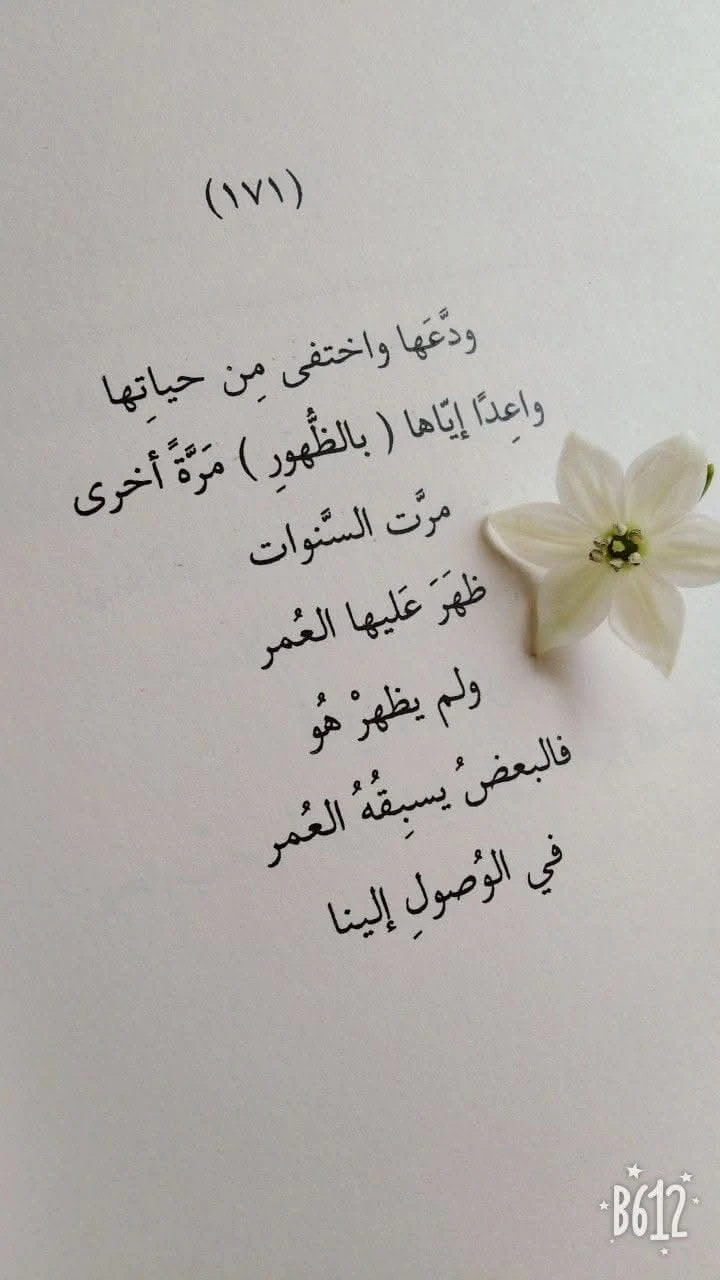 (١٧١)
ودَّعَها واختفى مِن حياتِها
واعِدًا إيّاها ( بالظُّهورِ ) مَرَّةً أخرى
مرَّت السَّنوات
ظهَرَ عَليها العُمر
ولم يظهرْ هُو
فالبعضُ يسبِقُهُ العُمر
في الوُصولِ إلينا
B612